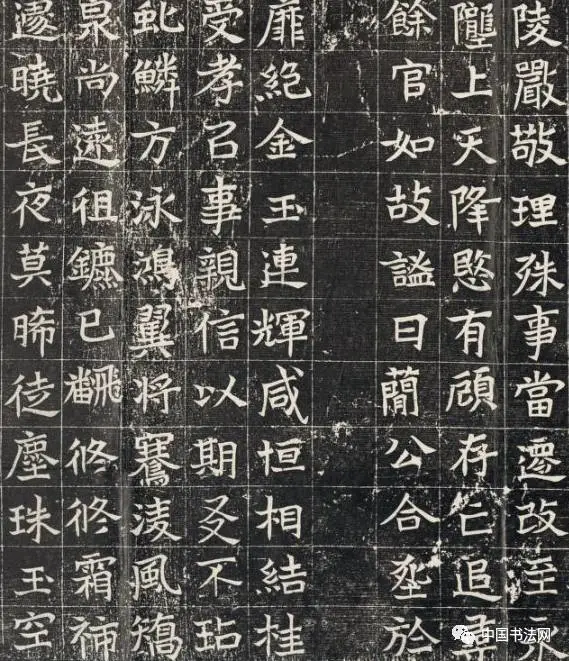 陵嚴敬理殊事當遷改至
上天降愍有顧存亡追
餘官如故謚曰蕳公合窆於
靡絕金玉連輝咸恒相結桂
受孝召事親信以期不玷
虬鱗方泳鴻翼将騫淩風矯
泉尚遠徂鑣已飜脩脩霜
遽曉長夜莫晞徒塵珠玉空
中国书法网